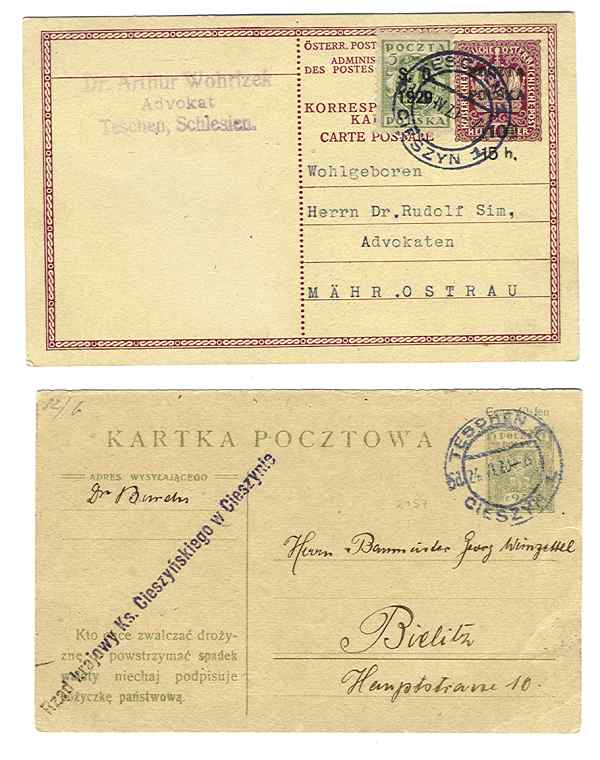 ÖSTERR. POST
ADMINIS
DES POSTES
KORRESP
KA
CARTE POSTALE
Dr. Arthur Wohrizek
Advokat
Teschen, Schlesien.
POCZTA
S. O.
1920
POLSKA
TESCHEN
CIESZYN 1
10
15 h.
Wohlgeboren
Herrn Dr.Rudolf Sim,
Advokaten
MÄHR.OSTRAU
82/6
KARTKA POCZTOWA
ADRES WYSYŁAJĄCEGO
Rząd krajowy Ks. Cieszyńskiego w Cieszynie
TESCHEN
CIESZYN 1
Herrn Baumeister Georg
Bielitz
Hauptstrasse 10.
Kto chce zwalczać droży-
znę i powstrzymać spadek
waluty niechaj podpisuje
pożyczkę państwową.